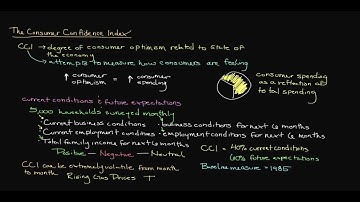 The Consumer Confidence Index
CCI → degree of consumer optimism related to state of
the economy
→ attempts to measure how consumers are feeling
↑ consumer optimism = ↑ consumer spending
consumer spending
as a reflection of
total spending
current conditions & future expectations
5,000 households surveyed monthly
Current business conditions · business conditions for next 6 months
Current employment conditions · employment conditions for next 6 months
Total family income for next 6 months
Positive – Negative – Neutral
CCI = 40% current conditions
60% future expectations
Baseline measure = 1985
CCI can be extremely volatile from month
to month
Rising Gas Prices